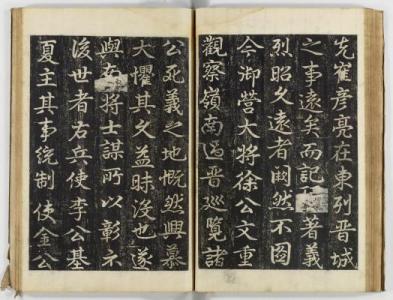 先崔彦亮在東列晋城
之事遠矣而記著義
烈昭久遠者闕然不圖
今御營大將徐公文重
觀察嶺南過晋巡覽諸
公死義之地慨然興慕
大懼其久益昧沒也遂
與右將士謀所以彰示
後世者右兵使李公基
夏主其事統制使金公